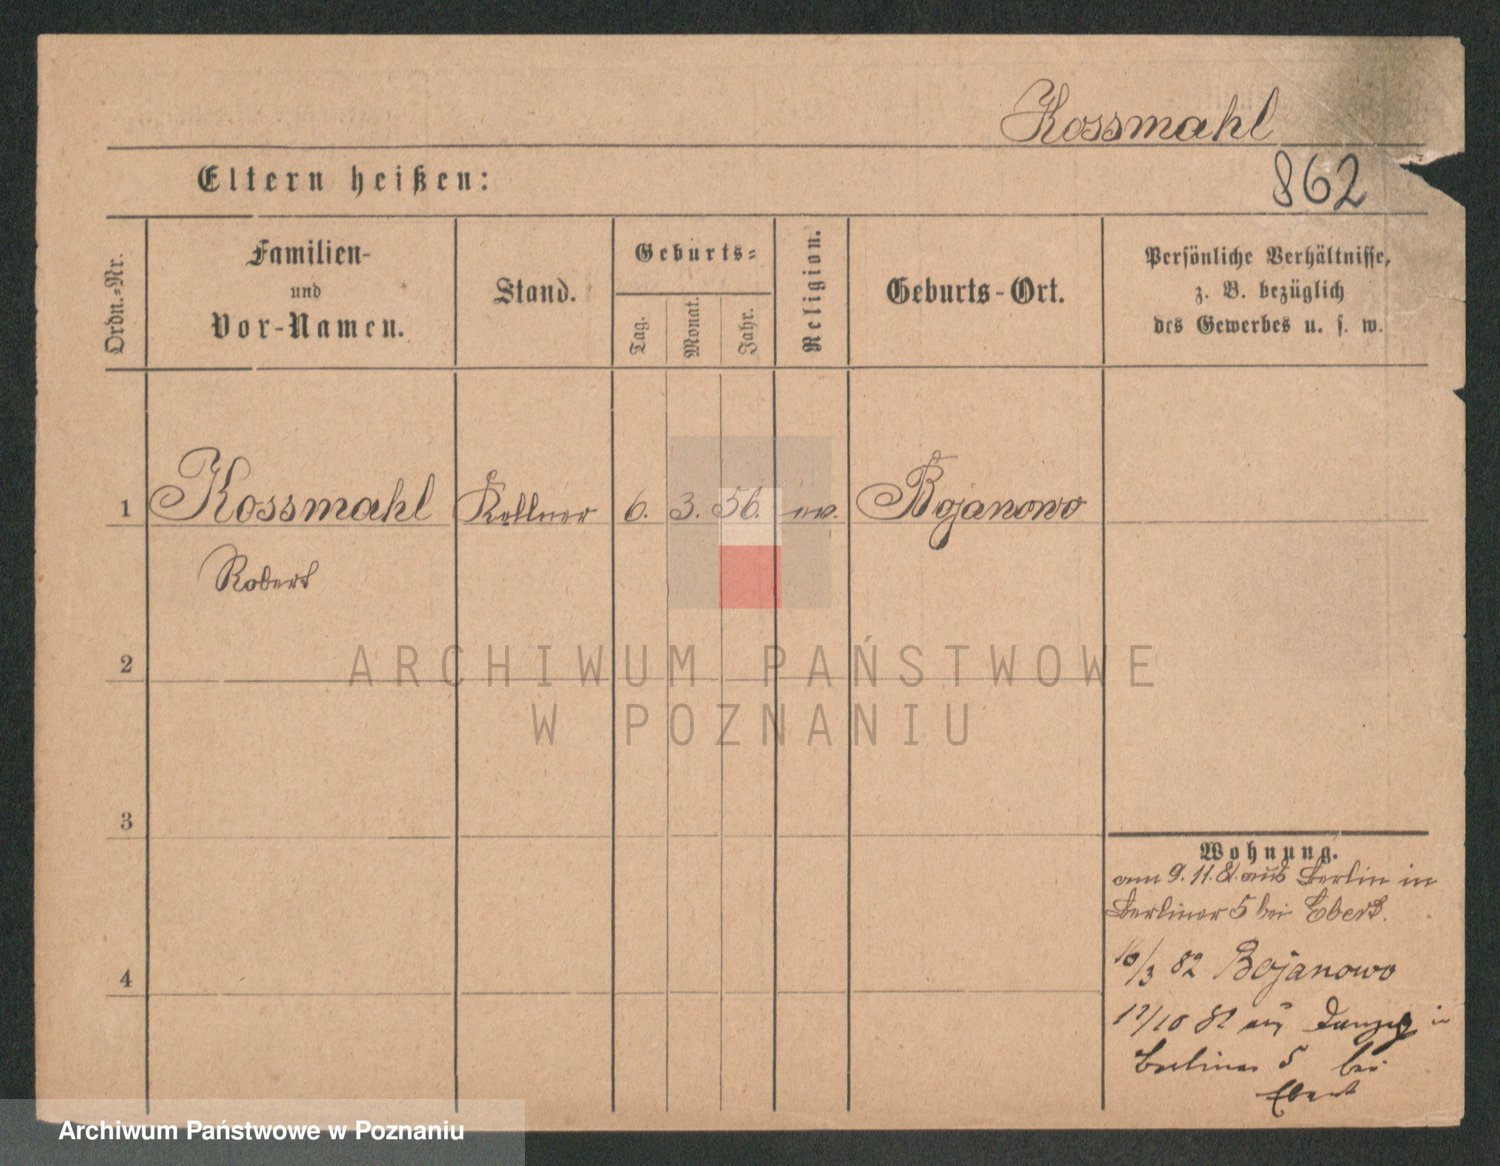 Kossmahl
862
Eltern heißen:
Ordn.-Nr.
Familien-
und
Vor-Namen.
Stand.
Geburts-
Tag.
Monat.
Jahr.
Religion.
Geburts-Ort.
Persönliche Verhältnisse,
z. B. bezüglich
des Gewerbes u. s. w.
1 Kossmahl Kellner 6. 3. 56. ev. Bojanowo
Robert
2
3
4
ARCHIWUM PAŃSTWOWE
W POZNANIU
Wohnung.
am 9. 11. 81. aus Berlin in
Berliner 5 bei Ebert.
10/3 82 Bojanowo
17/10 82 aus Danzig in
Berliner 5 bei
Ebert
Archiwum Państwowe w Poznaniu